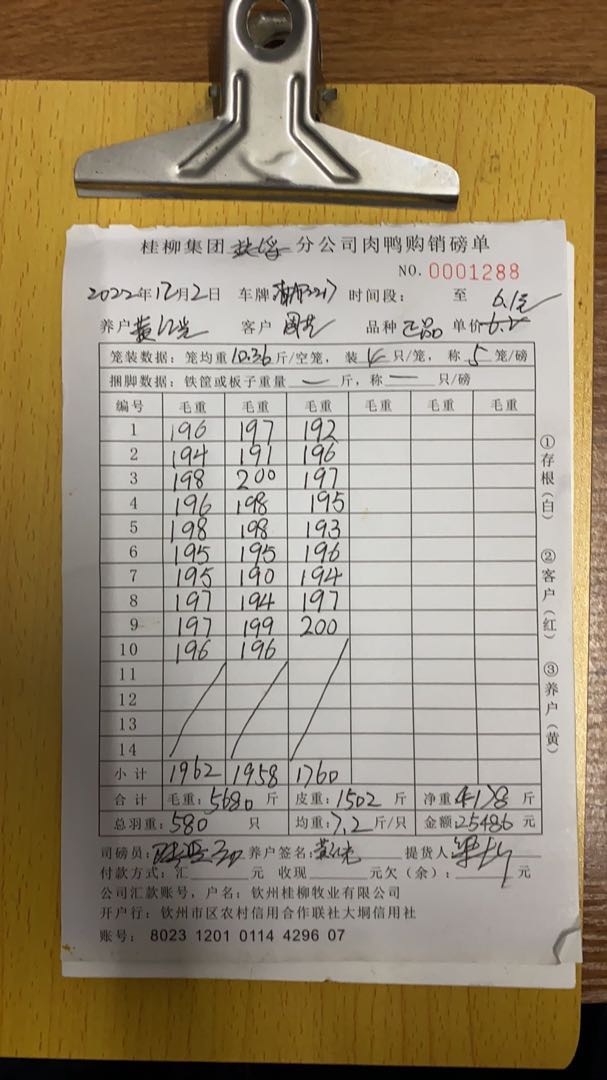 桂柳集团 分公司肉鸭购销磅单
NO. 0001288
2022年12月2日 车牌 时间段： 至 6.1元
养户 黄 客户 周 品种 正品 单价
笼装数据：笼均重10.36斤/空笼，装 4 只/笼，称 5 笼/磅
捆脚数据：铁筐或板子重量 — 斤，称 — 只/磅
编号 毛重 毛重 毛重 毛重 毛重 毛重
1 196 197 192
2 194 191 196
3 198 200 197
4 196 198 195
5 198 198 193
6 195 195 196
7 195 190 194
8 197 194 197
9 197 199 200
10 196 196
11
12
13
14
小计 1962 1958 1760
合计 毛重：5680 斤 皮重：1502 斤 净重 4178 斤
总羽重：580 只 均重：7.2 斤/只 金额：25486 元
司磅员： 养户签名：黄 提货人：
付款方式：汇 元 收现 元欠（余）： 元
公司汇款账号，户名：钦州桂柳牧业有限公司
开户行：钦州市区农村信用合作联社大垌信用社
账号：8023 1201 0114 4296 07
①存根（白）
②客户（红）
③养户（黄）